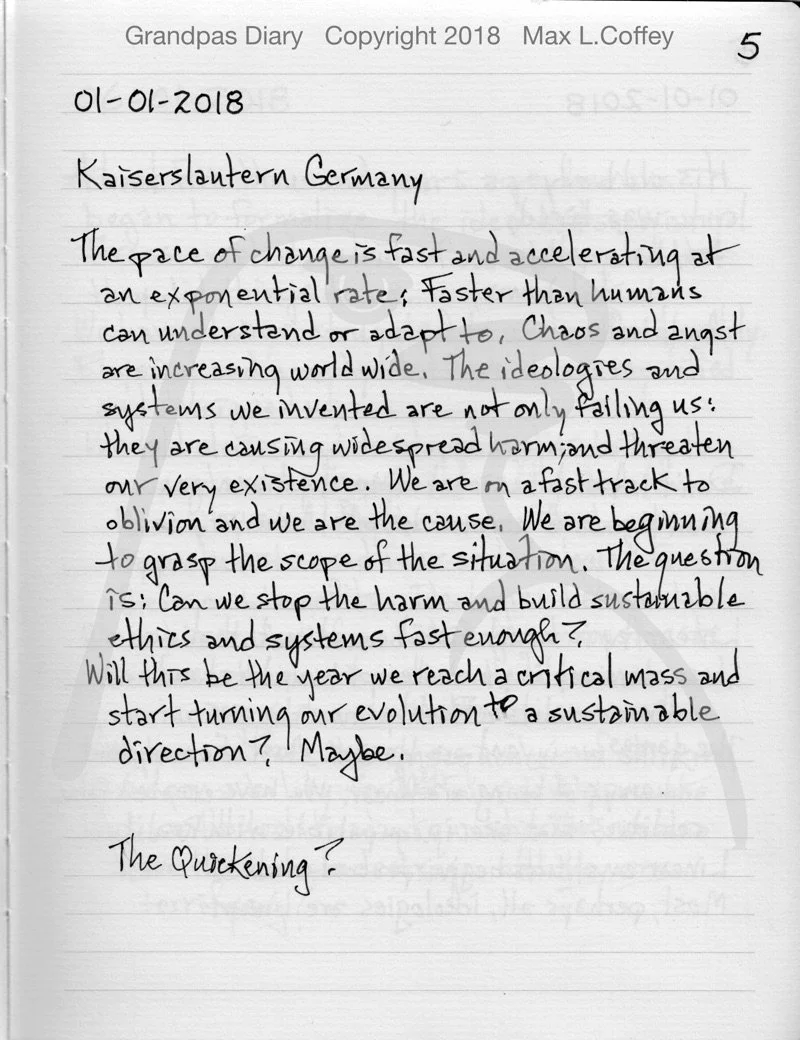 Grandpas Diary Copyright 2018 Max L.Coffey
5
01-01-2018
Kaiserslautern Germany
The pace of change is fast and accelerating at
an exponential rate; Faster than humans
can understand or adapt to. Chaos and angst
are increasing world wide. The ideologies and
systems we invented are not only failing us:
they are causing widespread harm; and threaten
our very existence. We are on a fast track to
oblivion and we are the cause. We are beginning
to grasp the scope of the situation. The question
is: Can we stop the harm and build sustainable
ethics and systems fast enough?
Will this be the year we reach a critical mass and
start turning our evolution to a sustainable
direction? Maybe.
The Quickening?